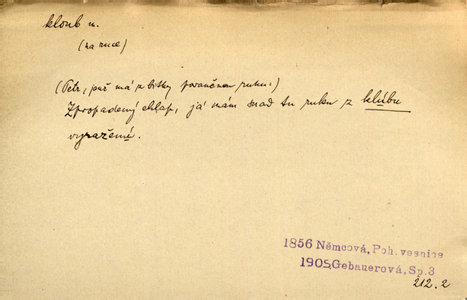 kloub m.
(na ruce)
(Petr, má z bitky poraněnou ruku:)
Zpropadený chlap, já mám snad tu ruku z klúbu
vyraženú.
1856 Němcová, Poh. vesnice
1905 Gebauerová, Sp. 3
212.2